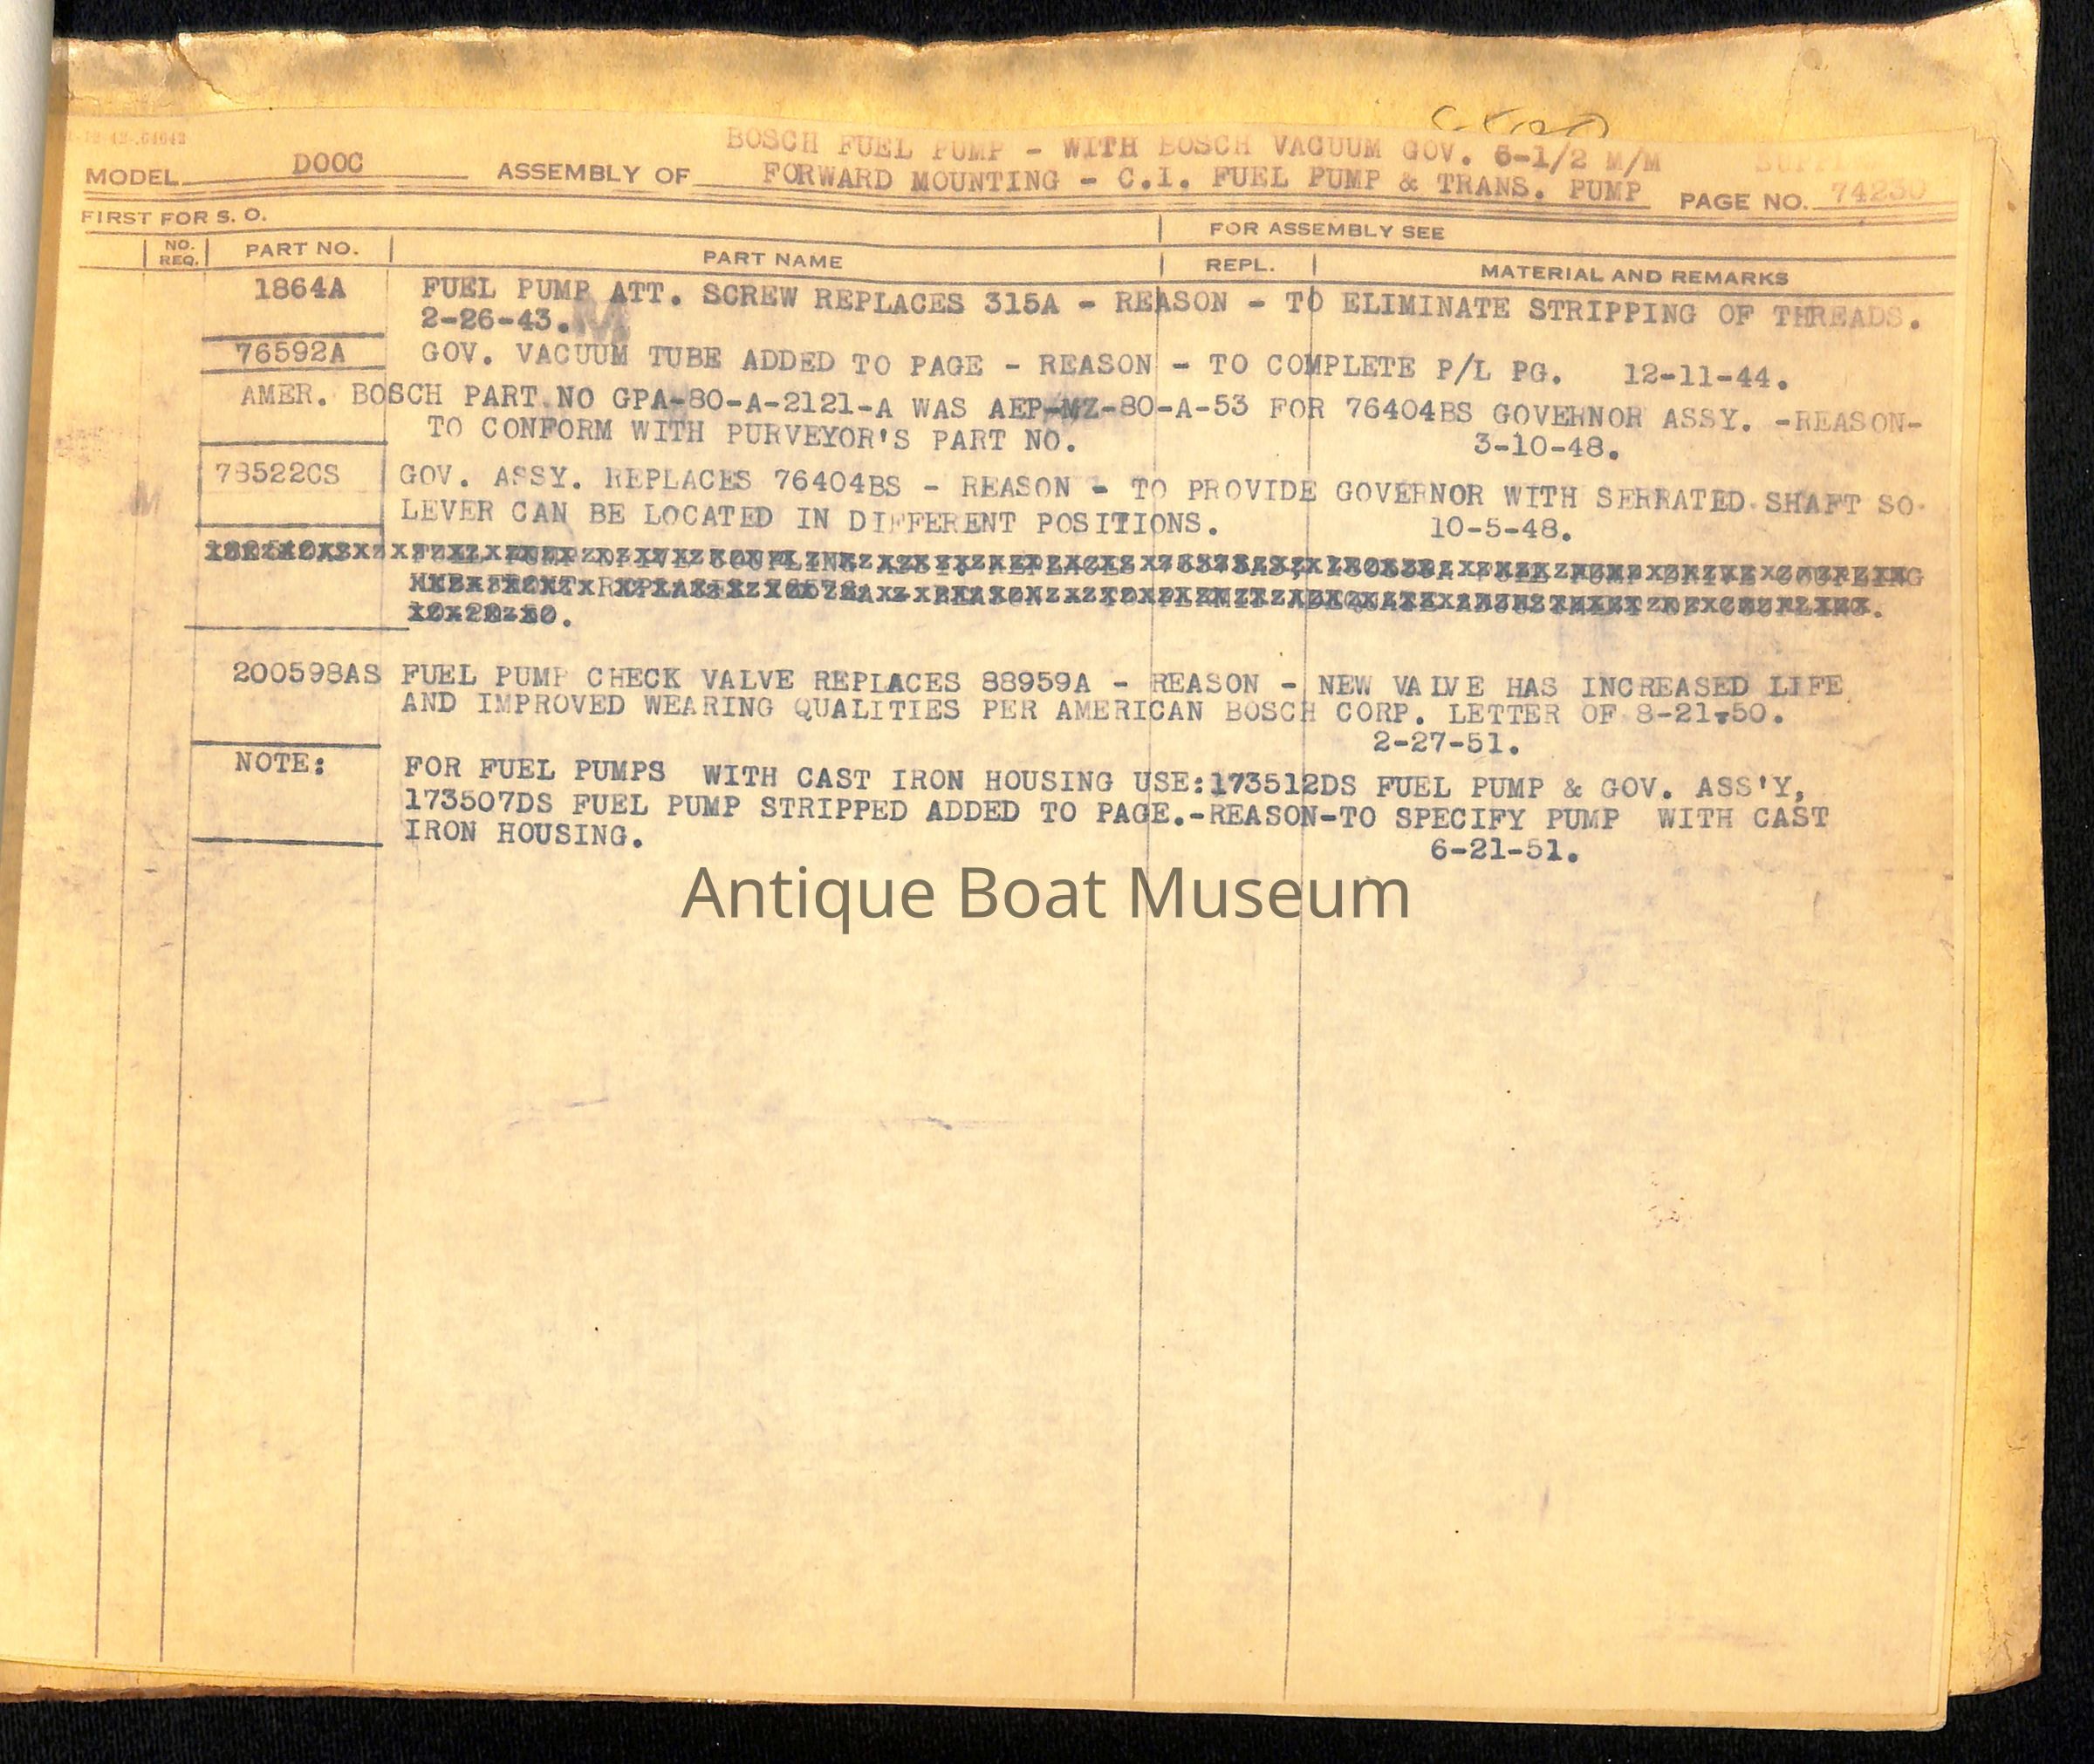 BOSCH FUEL PUMP - WITH BOSCH VACUUM GOV. 6-1/2 M/M
MODEL DOOC ASSEMBLY OF FORWARD MOUNTING - C.I. FUEL PUMP & TRANS. PUMP PAGE NO. 74230
FIRST FOR S. O. FOR ASSEMBLY SEE
NO. REQ. PART NO. PART NAME REPL. MATERIAL AND REMARKS
1864A FUEL PUMP ATT. SCREW REPLACES 315A - REASON - TO ELIMINATE STRIPPING OF THREADS.
2-26-43.
76592A GOV. VACUUM TUBE ADDED TO PAGE - REASON - TO COMPLETE P/L PG. 12-11-44.
AMER. BOSCH PART NO GPA-80-A-2121-A WAS AEP-MZ-80-A-53 FOR 76404BS GOVERNOR ASSY. -REASON-
TO CONFORM WITH PURVEYOR'S PART NO. 3-10-48.
78522CS GOV. ASSY. REPLACES 76404BS - REASON - TO PROVIDE GOVERNOR WITH SERRATED SHAFT SO
LEVER CAN BE LOCATED IN DIFFERENT POSITIONS. 10-5-48.
200598AS FUEL PUMP CHECK VALVE REPLACES 88959A - REASON - NEW VALVE HAS INCREASED LIFE
AND IMPROVED WEARING QUALITIES PER AMERICAN BOSCH CORP. LETTER OF 8-21-50.
2-27-51.
NOTE: FOR FUEL PUMPS WITH CAST IRON HOUSING USE:173512DS FUEL PUMP & GOV. ASS'Y,
173507DS FUEL PUMP STRIPPED ADDED TO PAGE.-REASON-TO SPECIFY PUMP WITH CAST
IRON HOUSING. 6-21-51.
Antique Boat Museum